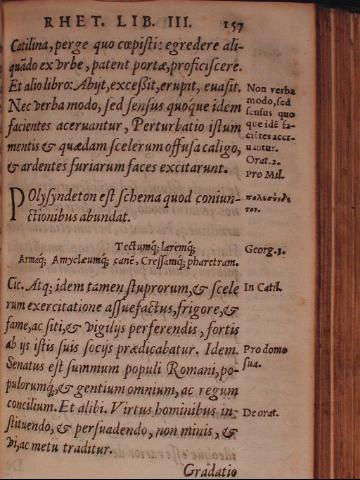 RHET. LIB. III. 157
Catilina, perge quo cœpisti: egredere ali-
quādo ex vrbe, patent portæ, proficiscere.
Et alio libro: Abijt, exceßit, erupit, euasit.
Nec verba modo, sed sensus quoque idem
facientes aceruantur, Perturbatio istum
mentis & quædam scelerum offusa caligo,
& ardentes furiarum faces excitarunt.
Non verba
modo, sed
sensus quo
que idē fa-
ciētes acer-
uantur.
Orat. 2.
Pro Mil.
POlysyndeton est schema quod coniun-
ctionibus abundat.
Tectumq; laremq;
Armaq; Amyclæumq; canē, Cressamq; pharetram.
Georg. 3.
Cic. Atq; idem tamen stuprorum, & scele
rum exercitatione assuefactus, frigore, &
fame, ac siti, & vigilijs perferendis, fortis
ab ijs istis suis socijs prædicabatur. Idem.
Senatus est summum populi Romani, po-
pulorumq; & gentium omnium, ac regum
concilium. Et alibi. Virtus hominibus in-
stituendo, & persuadendo, non minis, &
vi, ac metu traditur.
In Catil.
Pro domo
sua.
De orat.
Gradatio